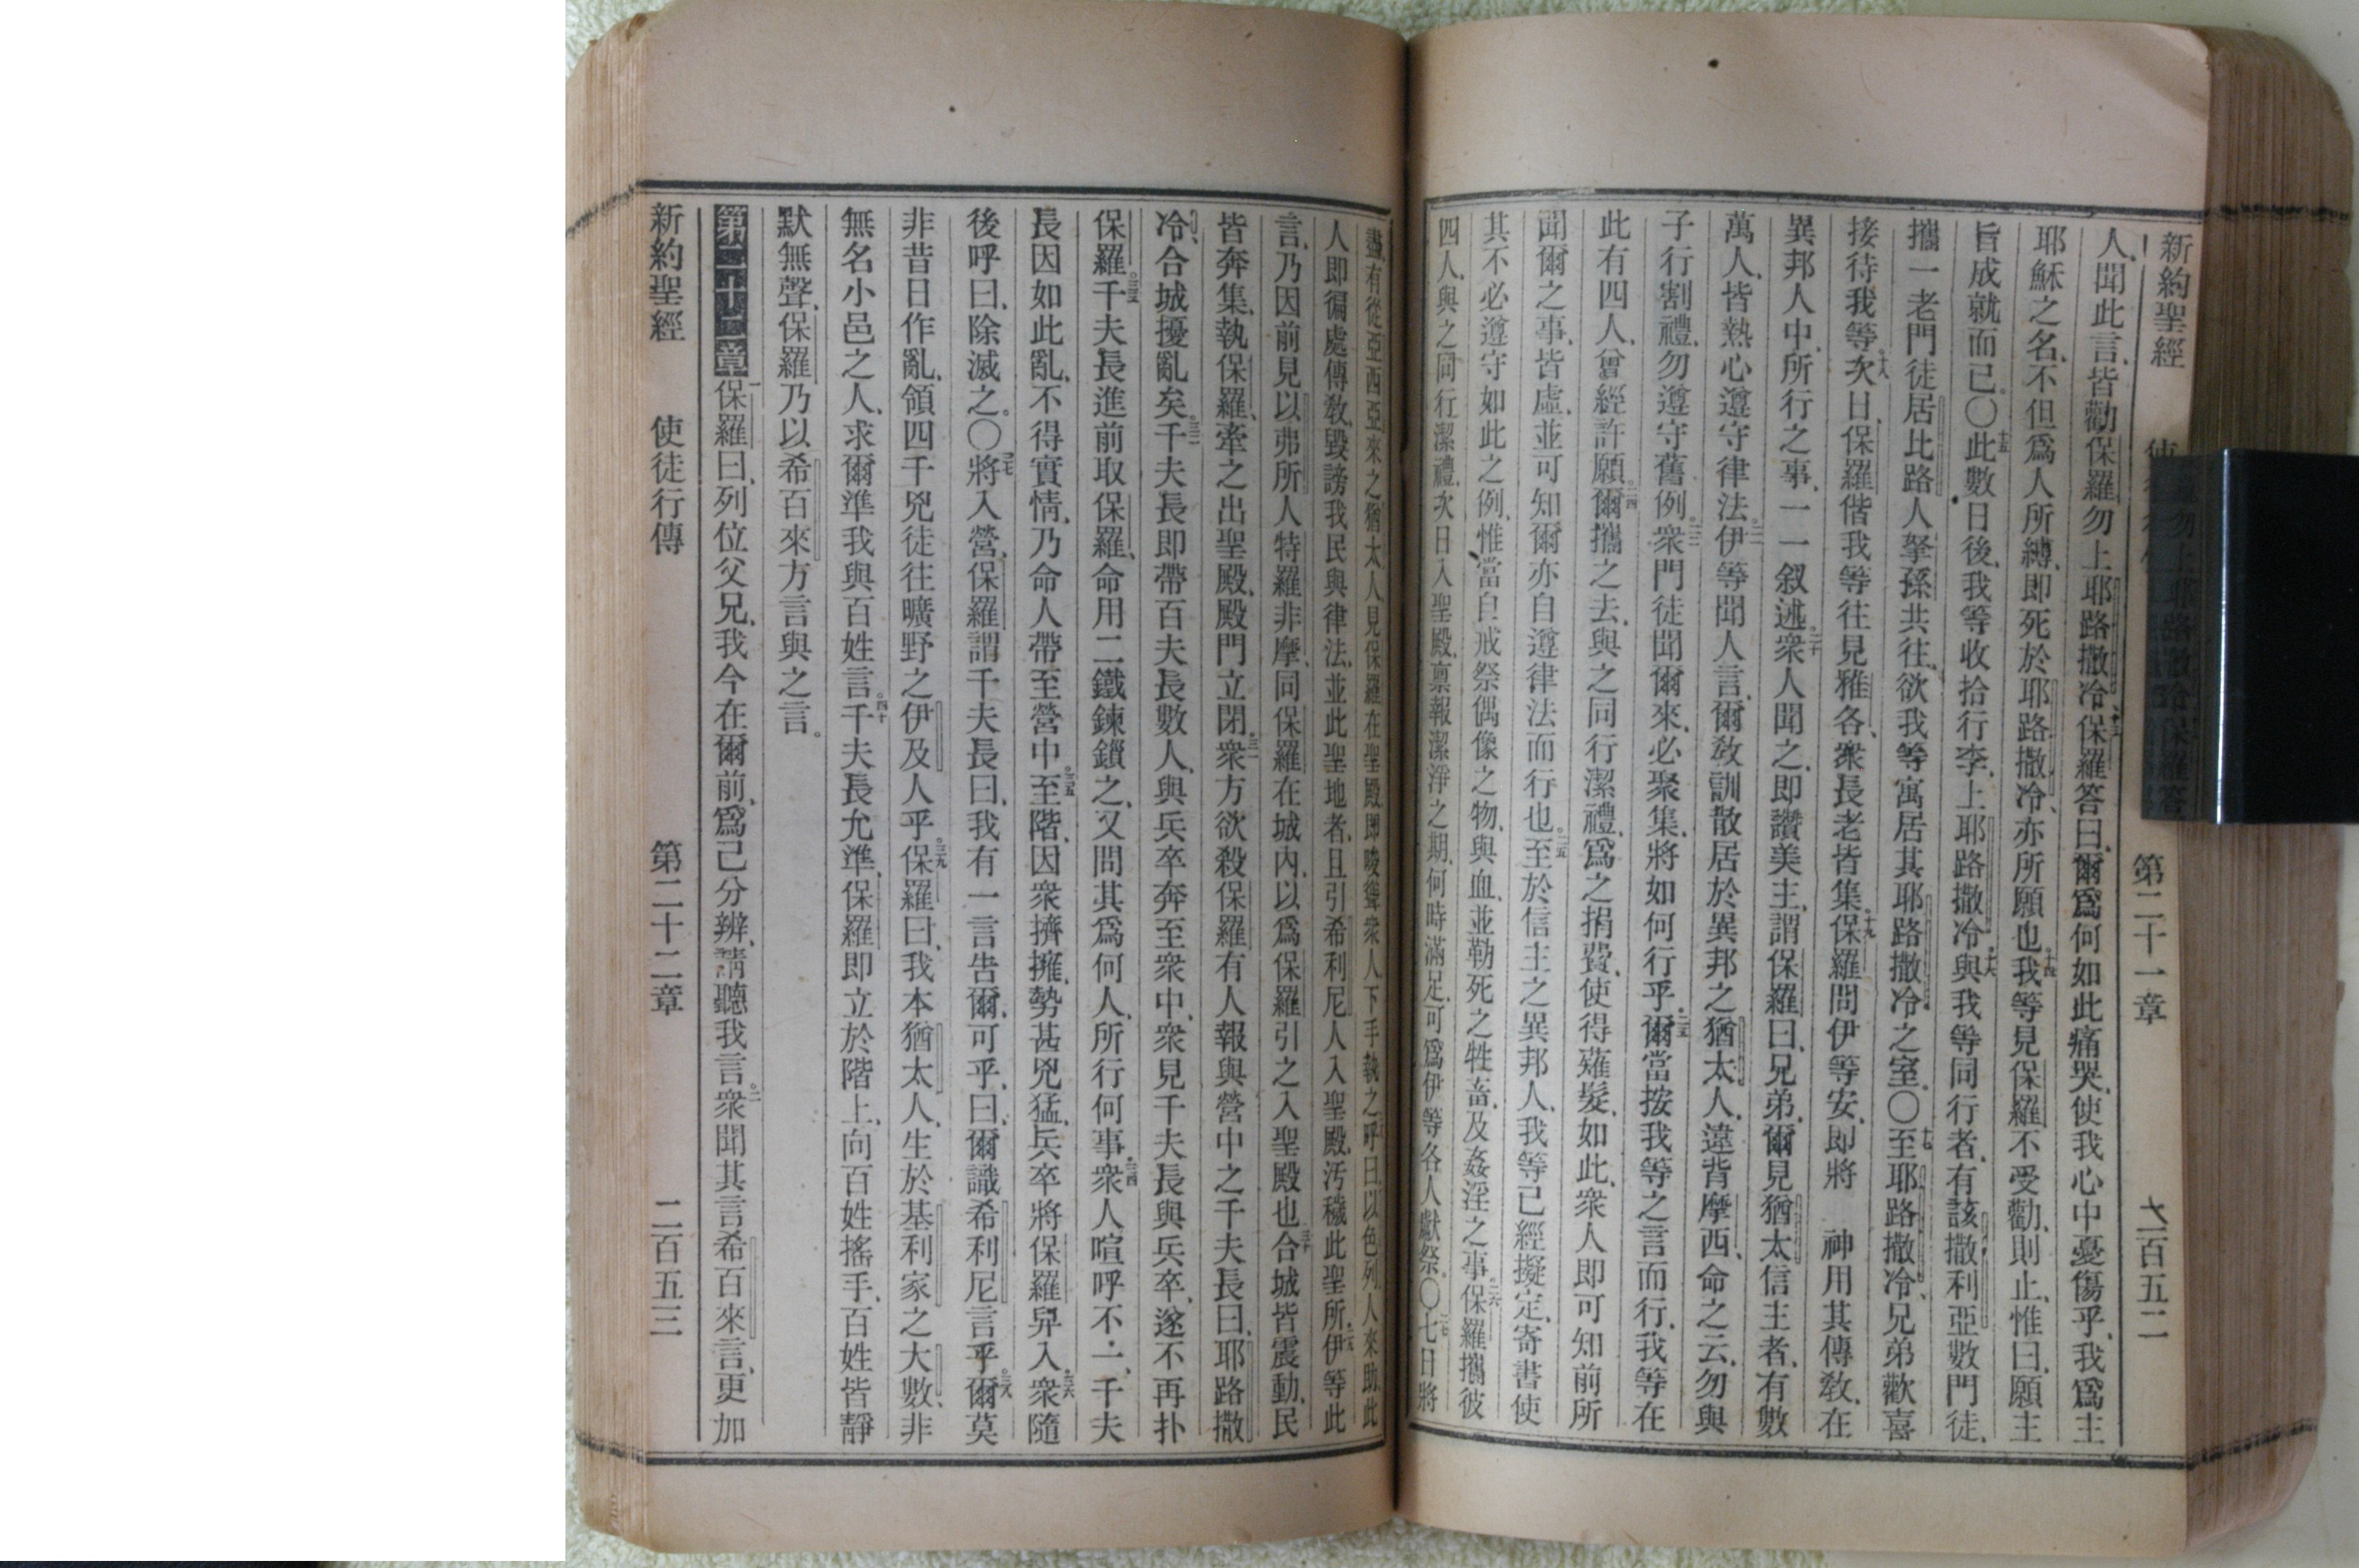 新約聖經 第二十一章 二百五二
人、聞此言、皆勸保羅勿上耶路撒冷、十三保羅答曰、爾爲何如此痛哭、使我心中憂傷乎、我爲主
耶穌之名、不但爲人所縛、即死於耶路撒冷、亦所願也、十四我等見保羅不受勸、則止、惟曰、願主
旨成就而已。〇十五此數日後、我等收拾行李、上耶路撒冷、十六與我等同行者、有該撒利亞數門徒、
攜一老門徒居比路人拏孫共往、欲我等寓居其耶路撒冷之室。〇十七至耶路撒冷、兄弟歡喜
接待我等、十八次日、保羅偕我等往見雅各、衆長老皆集。十九保羅問伊等安、即將 神用其傳敎、在
異邦人中、所行之事、一一叙述。二十衆人聞之、即讚美主、謂保羅曰、兄弟、爾見猶太信主者、有數
萬人、皆熱心遵守律法。二一伊等聞人言、爾敎訓散居於異邦之猶太人、違背摩西、命之云、勿與
子行割禮、勿遵守舊例。二二衆門徒聞爾來、必聚集、將如何行乎。二三爾當按我等之言而行、我等在
此有四人、曾經許願。二四爾攜之去、與之同行潔禮、爲之捐費、使得薙髮、如此、衆人即可知前所
聞爾之事、皆虛、並可知爾亦自遵律法而行也。二五至於信主之異邦人、我等已經擬定、寄書使
其不必遵守如此之例、惟當自戒祭偶像之物、與血、並勒死之牲畜、及姦淫之事。二六保羅攜彼
四人、與之同行潔禮、次日入聖殿、稟報潔淨之期、何時滿足、可爲伊等各人獻祭。〇二七七日將
盡、有從亞西亞來之猶太人、見保羅在聖殿、即唆聳衆人、下手執之、二八呼曰、以色列人來助、此
人即徧處傳敎、毀謗我民、與律法、並此聖地者、且引希利尼人入聖殿、汚穢此聖所。二九伊等此
言、乃因前見以弗所人特羅非摩、同保羅在城內、以爲保羅引之入聖殿也。三十合城皆震動、民
皆奔集、執保羅、牽之出聖殿、殿門立閉。三一衆方欲殺保羅、有人報與營中之千夫長曰、耶路撒
冷、合城擾亂矣。三二千夫長即帶百夫長數人、與兵卒奔至衆中、衆見千夫長與兵卒、遂不再扑
保羅。三三千夫長進前取保羅、命用二鐵鍊鎖之、又問其爲何人、所行何事。三四衆人喧呼不一、千夫
長因如此亂、不得實情、乃命人帶至營中。三五至階、因衆擠擁、勢甚兇猛、兵卒將保羅舁入。三六衆隨
後呼曰、除滅之。〇三七將入營、保羅謂千夫長曰、我有一言告爾、可乎、曰、爾識希利尼言乎。三八爾莫
非昔日作亂、領四千兇徒往曠野之伊及人乎。三九保羅曰、我本猶太人、生於基利家之大數、非
無名小邑之人、求爾準我與百姓言。四十千夫長允準、保羅即立於階上、向百姓搖手、百姓皆靜
默無聲、保羅乃以希百來方言與之言。
第二十二章 一保羅曰、列位父兄、我今在爾前、爲己分辨、請聽我言。二衆聞其言希百來言、更加
新約聖經 使徒行傳 第二十二章 二百五三